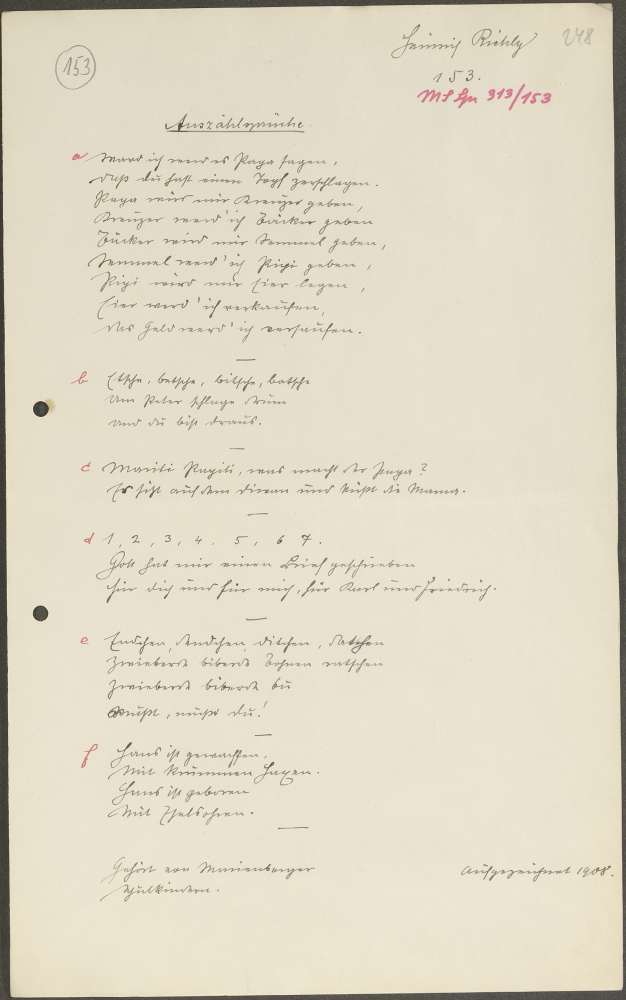 Heinrich Richly
248
153
153.
MS Gn 313/153
Auszählsprüche.
a Ward ich werd es Papa sagen,
daß du hast einen Topf zerschlagen.
Papa wird mir Kreuzer geben,
Kreuzer werd' ich Bäcker geben
Bäcker wird mir Semmel geben,
Semmel werd' ich Pipi geben,
Pipi wird mir Eier legen,
Eier werd' ich verkaufen,
das Geld werd' ich versaufen.
b Etsche, betsche, bitsche, batsche
Um Peter schlage drum
und du bist draus.
c Mariti Papiti, was macht der Papa?
Er sitzt auf dem Divan und küßt die Mama.
d 1, 2, 3, 4. 5, 6 7.
Gott hat mir einen Brief geschrieben
für dich und für mich, für Karl und Friedrich.
e Endchen, dendchen, ditchen, datschen
biberde Bohnen ratschen
biberde bu
mußt, mußt du!
f Hans ist gewachsen,
Mit krummen Haxen.
Hans ist geboren
Mit Eselsohren.
Gehört von Marienberger
Schulkindern.
Aufgezeichnet 1908.